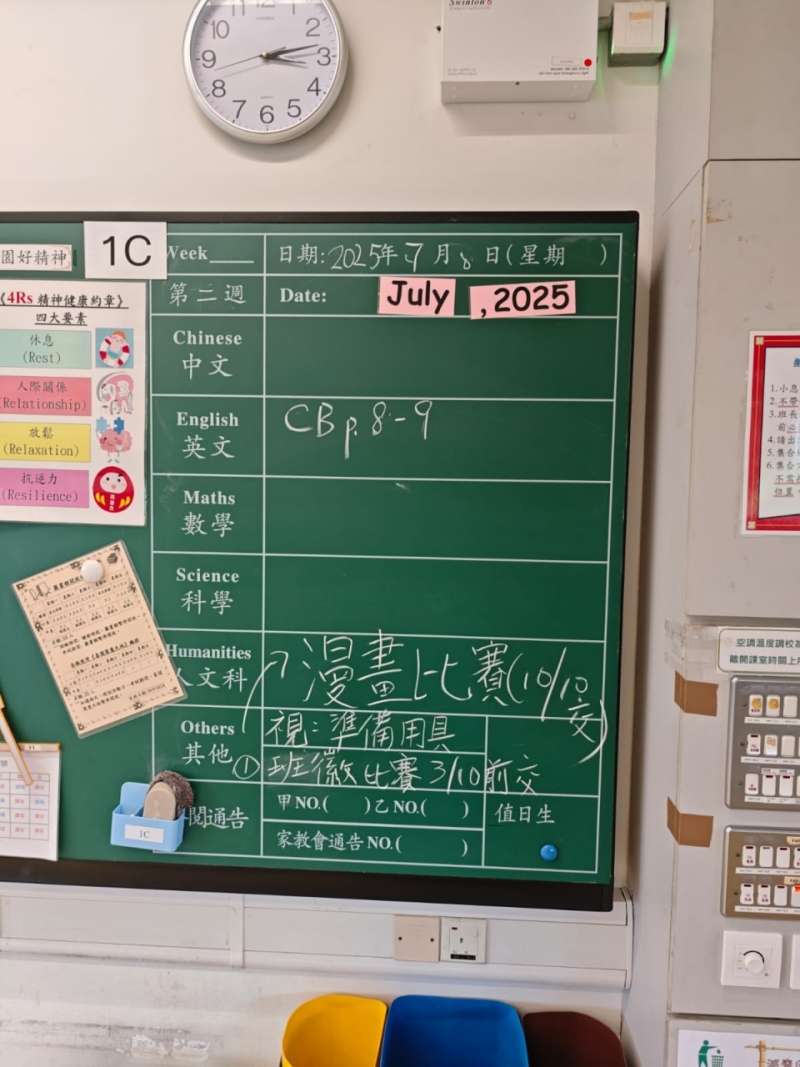 10
11
12
1
2
3
4
5
6
7
8
9
Swinton
園好精神
1C
Week
日期: 2025年 7 月 8 日(星期 )
第二週
Date: July , 2025
《4Rs 精神健康約章》
四大要素
休息
(Rest)
人際關係
(Relationship)
放鬆
(Relaxation)
抗逆力
(Resilience)
Chinese
中文
English
英文
CB p. 8-9
Maths
數學
Science
科學
Humanities
人文科
漫畫比賽(10/10交)
Others
其他
視：準備用具
① 班徽比賽 3/10前交
閱通告
甲NO.( )乙NO.( )
家教會通告NO.( )
值日生
1C
1.小息
2.不帶
3.班長
前必
4.請出
5.集合
6.集合
不需
位置
空調溫度調校為
離開課室時間上